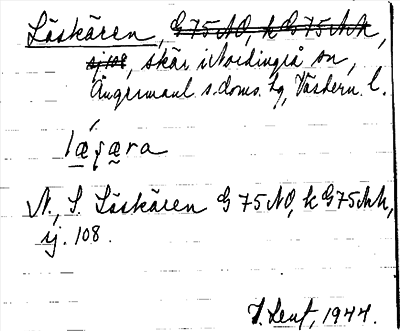 Läskären, G75NO, k G75NN,
sj108, skär i Nordingrå sn,
Ångermanl. s. doms. hg, Västern. l.
læʂara
N., S. Läskären G 75 NO, k G75NN,
sj. 108.
1944.